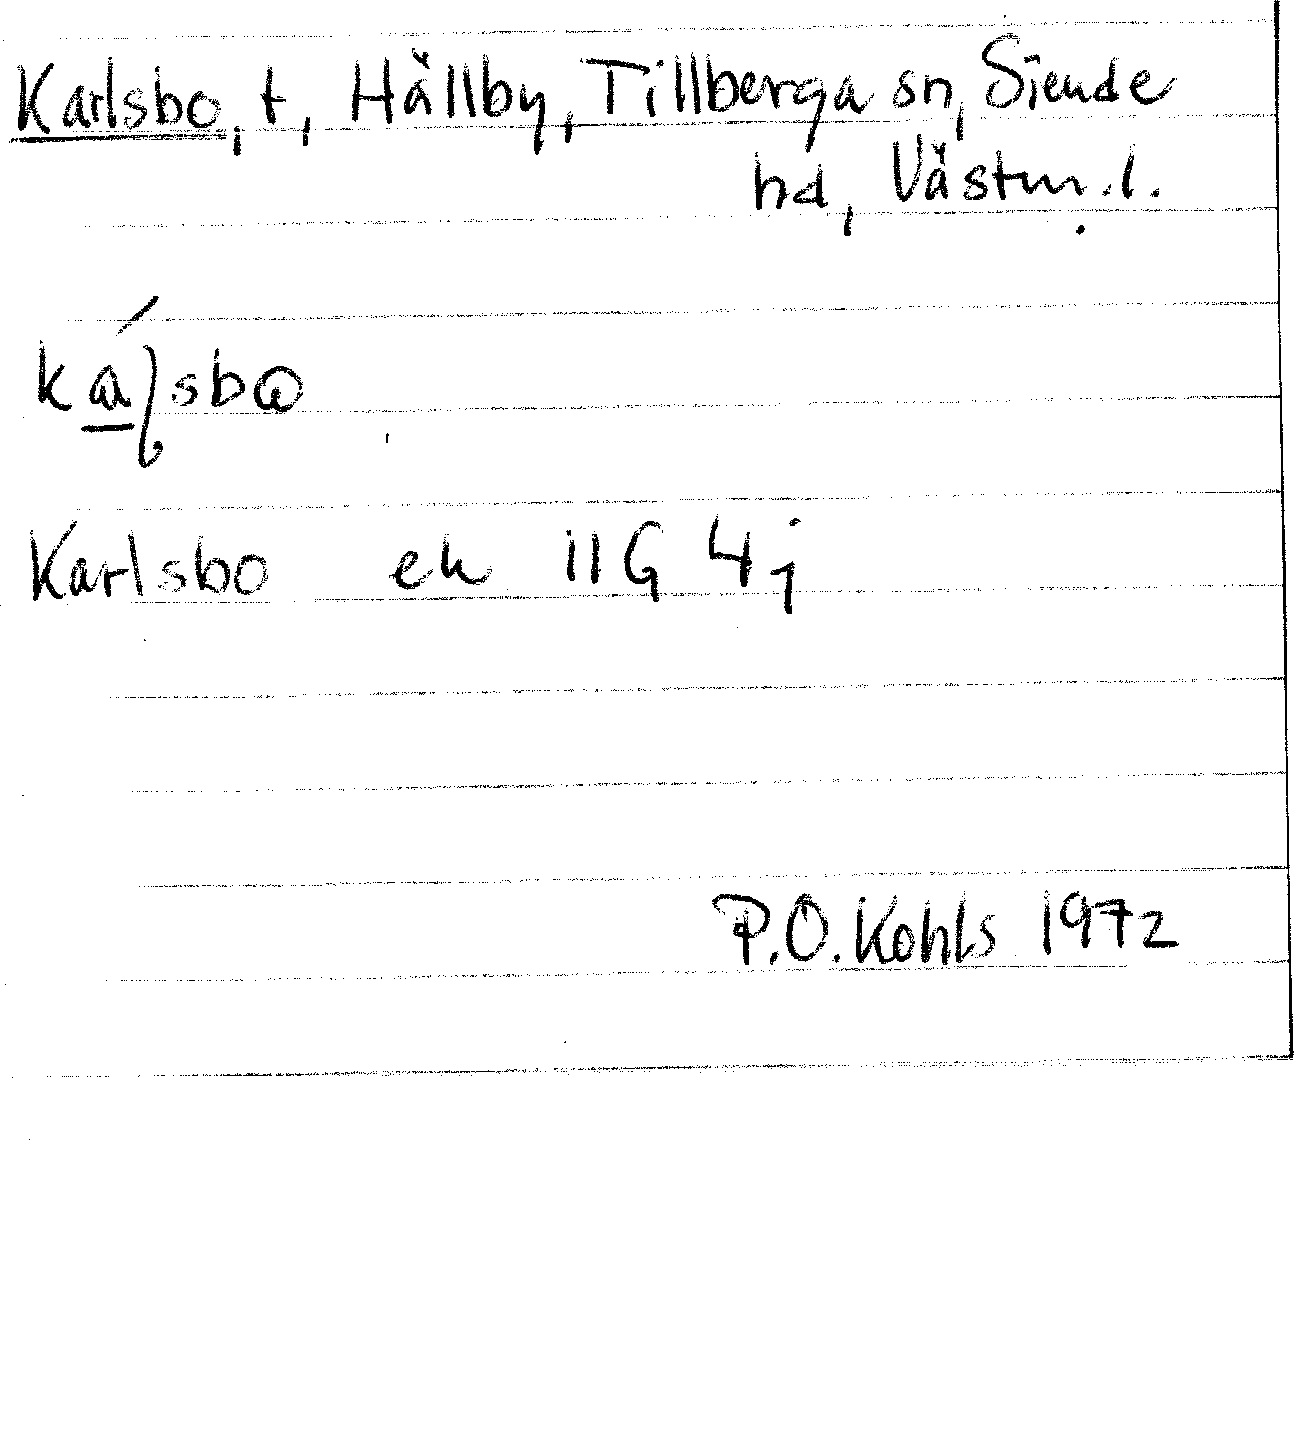 Karlsbo, t, Hällby, Tillberga sn, Siende
hd, Västm. l.
Karlsbo ek 11G 4j
P.O. Kohls 1972